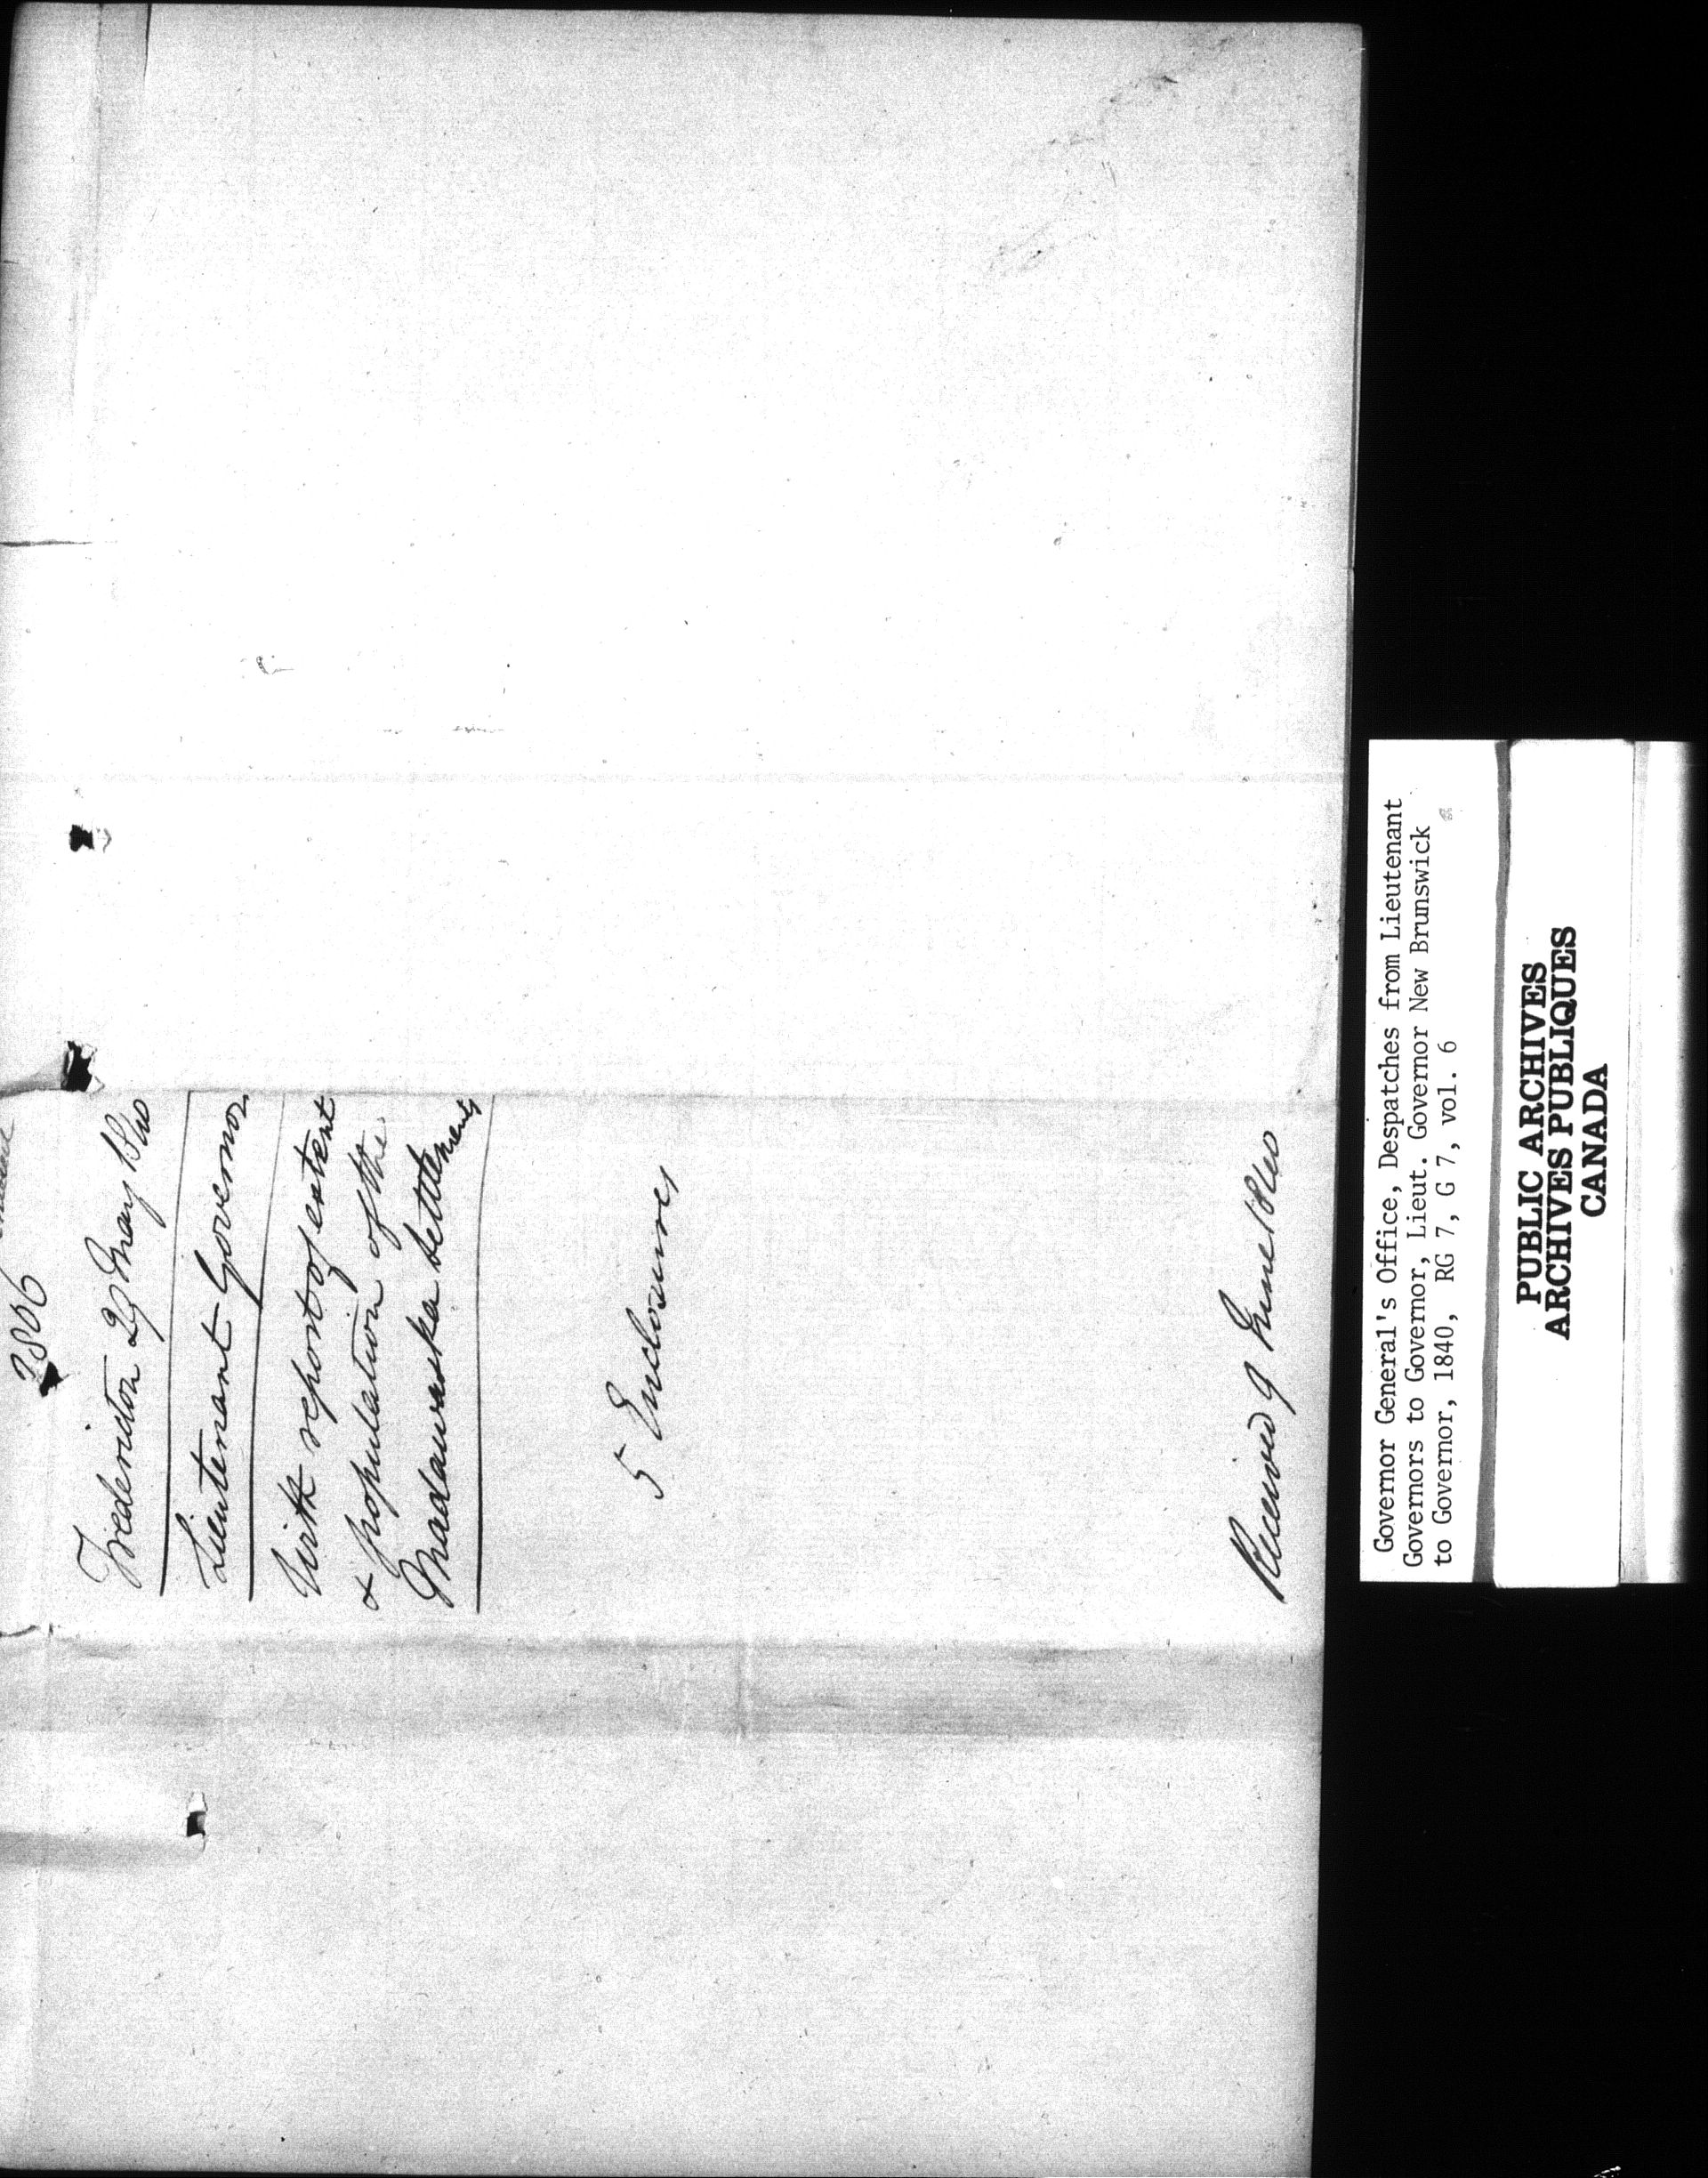 2806
Fredericton 29 May 1840
Lieutenant Governor
With report of extent
& population of the
Madawaska Settlements
5 Enclosures
Received 9 June 1840
Governor General's Office, Despatches from Lieutenant
Governors to Governor, Lieut. Governor New Brunswick
to Governor, 1840, RG 7, G 7, vol. 6
PUBLIC ARCHIVES
ARCHIVES PUBLIQUES
CANADA